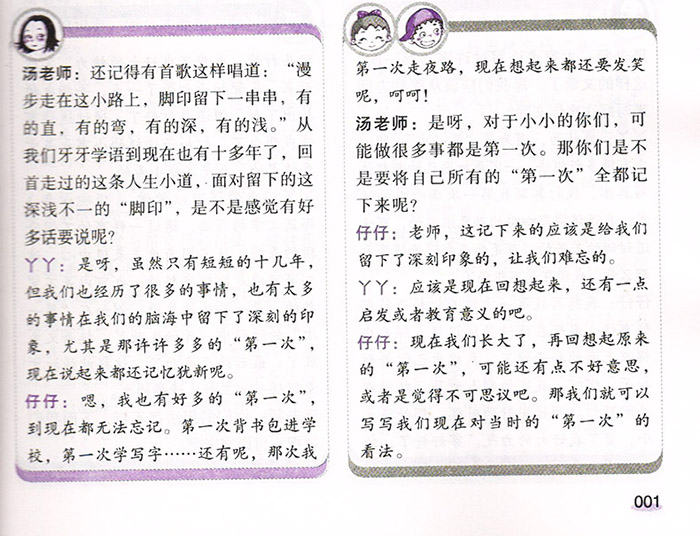 汤老师：还记得有首歌这样唱道：“漫
步走在这小路上，脚印留下一串串，有
的直，有的弯，有的深，有的浅。”从
我们牙牙学语到现在也有十多年了，回
首走过的这条人生小道，面对留下的这
深浅不一的“脚印”，是不是感觉有好
多话要说呢？
丫丫：是呀，虽然只有短短的十几年，
但我们也经历了很多的事情，也有太多
的事情在我们的脑海中留下了深刻的印
象，尤其是那许许多多的“第一次”，
现在说起来都还记忆犹新呢。
仔仔：嗯，我也有好多的“第一次”，
到现在都无法忘记。第一次背书包进学
校，第一次学写字……还有呢，那次我
第一次走夜路，现在想起来都还要发笑
呢，呵呵！
汤老师：是呀，对于小小的你们，可
能做很多事都是第一次。那你们是不
是要将自己所有的“第一次”全都记
下来呢？
仔仔：老师，这记下来的应该是给我们
留下了深刻印象的，让我们难忘的。
丫丫：应该是现在回想起来，还有一点
启发或者教育意义的吧。
仔仔：现在我们长大了，再回想起原来
的“第一次”，可能还有点不好意思，
或者是觉得不可思议吧。那我们就可以
写写我们现在对当时的“第一次”的
看法。
001